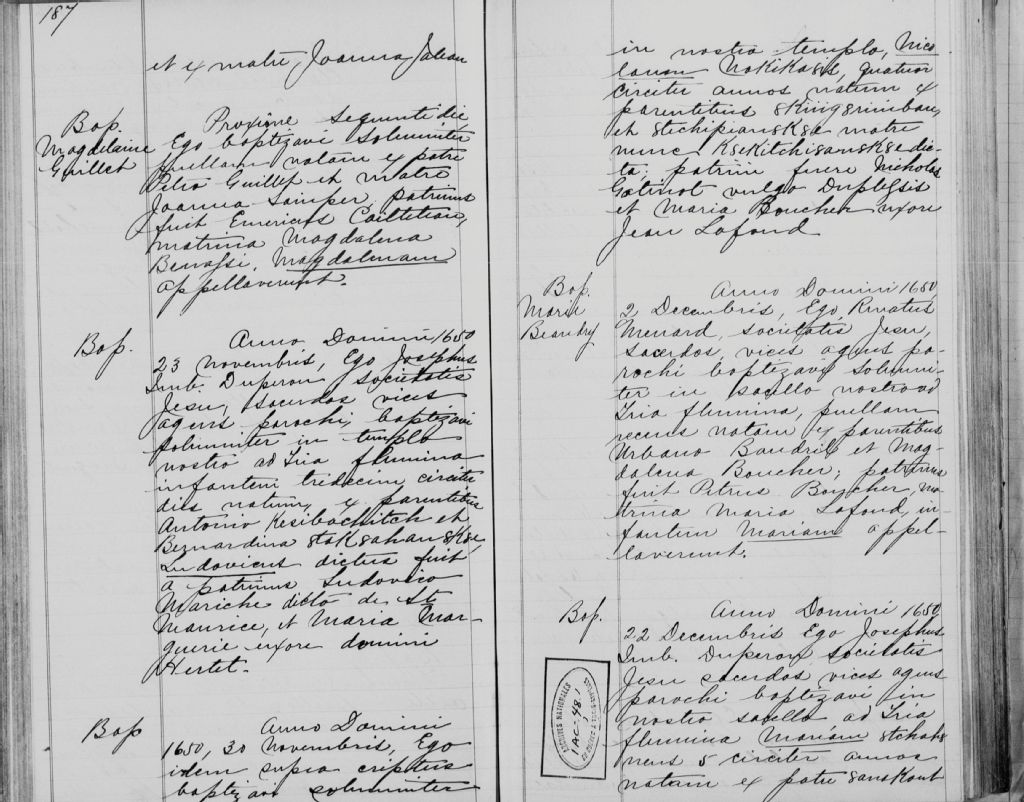 187
et ex matre, Joanna
Bap.
Magdelaine
Guillet
Proxime sequenti die
Ego baptezavi solemniter
puellam natam ex patre
Petro Guillet et matre
Joanna Saimper, patrinus
fuit Emericus Cailteteau,
matrina Magdalena
Benassi, Magdalenam
appellaverunt.
Bap.
Anno Domini 1650
23 Novembris, Ego Josephus
Imb. Duperon Societatis
Jesu, sacerdos vices
agens parochi, baptezavi
solemniter in templo
nostro ad Tria flumina
infantem tredecim circiter
dies natum, ex parentibus
Antonio Kesibachitch et
Bernardina 8tak8ahansk8e,
Ludovicus dictus fuit
a patrinis Ludovico
Mariche dicto de St
Maurice, et Maria Mar-
guerie uxore domini
Hertel.
Bap
Anno Domini
1650, 30 Novembris, Ego
idem supra criptus
baptezavi solemniter
in nostro templo, Nico
laum NaKiKa8is, quatuor
circiter annos natum ex
parentibus
et 8techipiansk8e matre
nunc K8eKitchi8ansk8e dic-
ta; patrini fuere Nicholas
Gatinot vulgo Duplessis
et Maria Boucher uxore
Jean Lafond
Bap.
Marie
Beaudry
Anno Domini 1650
2 Decembris, Ego, Renatus
Menard, societatis Jesu,
sacerdos, vices agens pa-
rochi baptezavi solemni-
ter in sacello nostro ad
Tria flumina, puellam
recens natam ex parentibus
Urbano Baudril et Mag-
dalena Boucher; patrinus
fuit Petrus Boucher, ma
trina Maria Lafond, in-
fantem Mariam appel-
laverunt.
Bap.
Anno Domini 1650
22 Decembris Ego Josephus
Imb. Duperon societatis
Jesu sacerdos vices agens
parochi baptezavi in
nostro sacello ad Tria
flumina Mariam
5 circiter annos
natam ex patre 8anskout
ARCHIVES NATIONALES